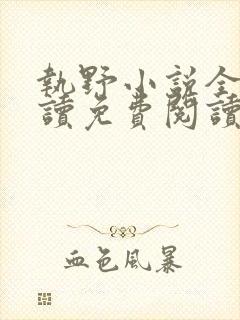 執野小說全
讀免費閱讀
血色風暴